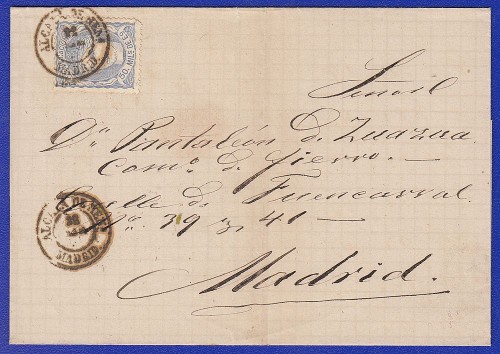 ALCALÁ DE HEN.
MADRID.
50 MILS DE E.
Señor
Dn. Pantaleón de Zuazua
Como. de fierro. —
Calle de Fuencarral
Nº. 39 y 41 —
Madrid.
ALCALÁ DE HEN.
MADRID.